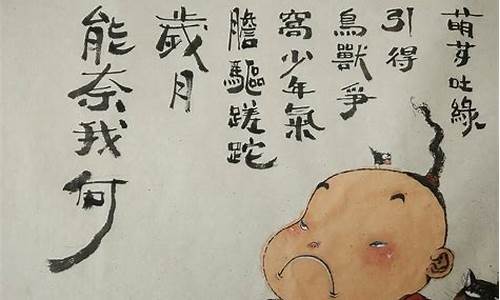 萌芽吐綠
引得
鳥獸爭
窩少年氣
膽驅蹉跎
歲月
能奈我何